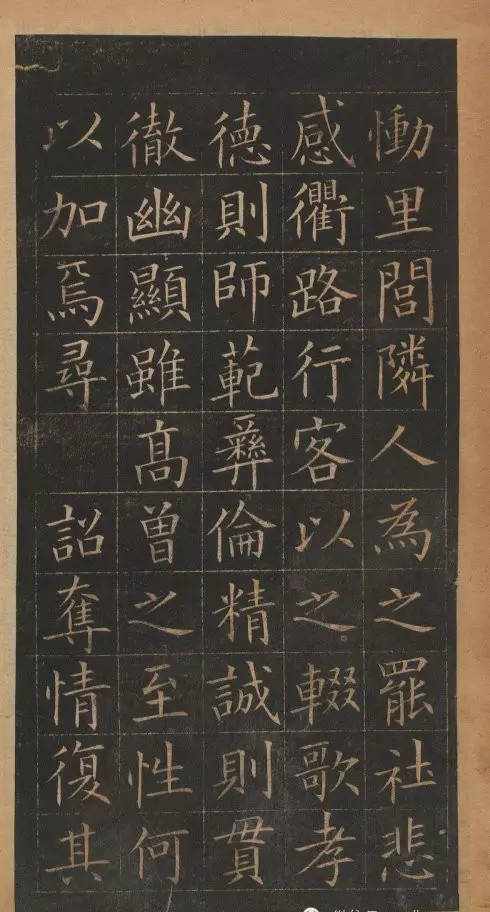 慟里閭隣人為之罷社悲
感衢路行客以之輟歌孝
德則師範彝倫精誠則貫
徹幽顯雖高曾之至性何
以加焉尋 詔奪情復其